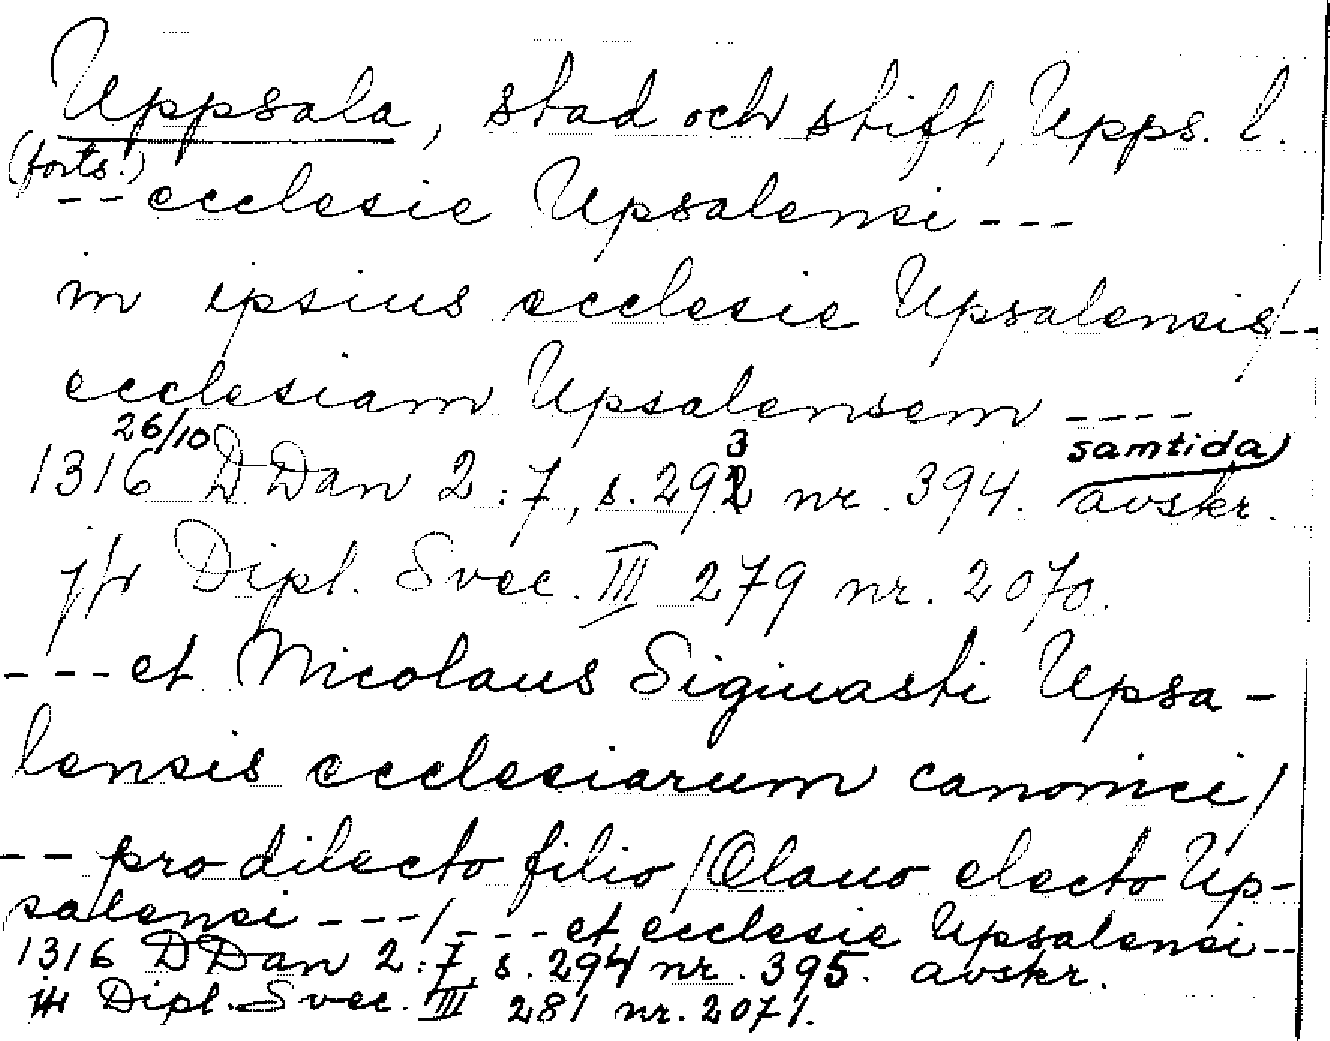 Uppsala, stad och stift, Upps. l.
(forts.)
-- ecclesie Upsalensi ---
in ipsius ecclesie Upsalensis/--
ecclesiam Upsalensem ----
1316 26/10 DDan 2:7, s. 293 nr. 394. samtida avskr.
jfr Dipl. Svec. III 279 nr. 2070.
--- et Nicolaus Sigwasti Upsa-
lensis ecclesiarum canonici/
-- pro dilecto filio/Olauo electo Up-
salensi ---/--- et ecclesie Upsalensi--
1316 DDan 2:7, s. 294 nr. 395. avskr.
jfr Dipl. Svec. III 281 nr. 2071.